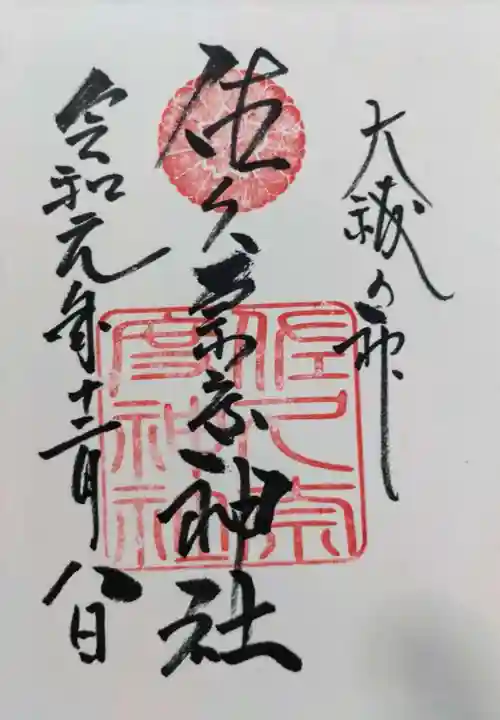 大祓の神
佐久奈度神社
令和元年十二月八日
佐久奈
度神社